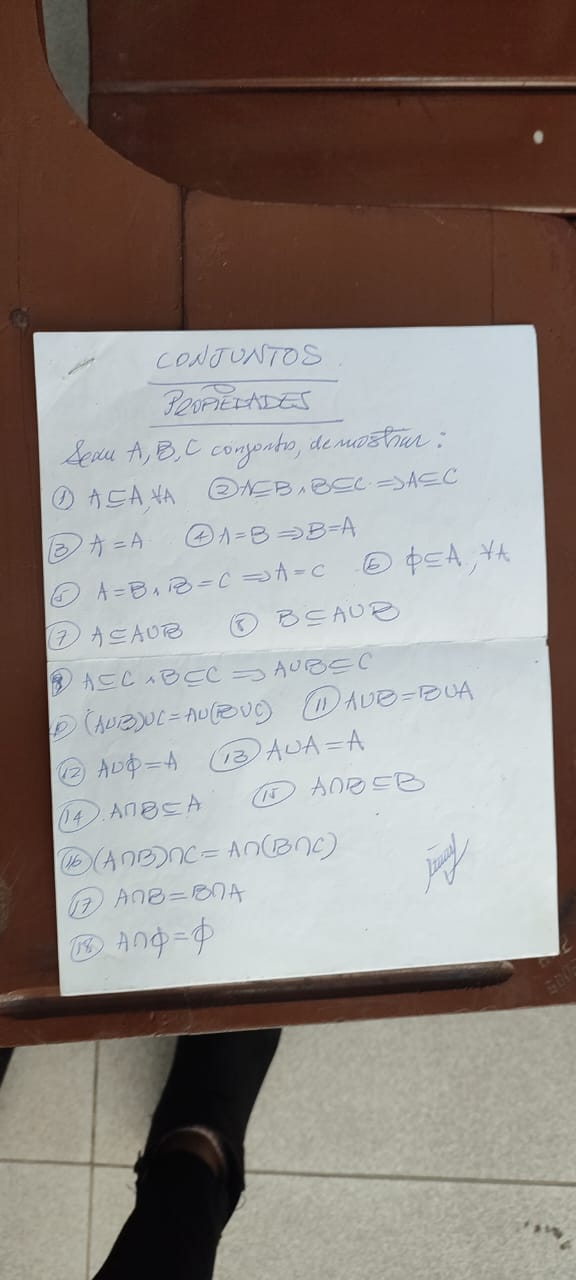 CONJUNTOS
PROPIEDADES
Sean A, B, C conjuntos, demostrar:
① A⊆A, ∀A ② A⊆B ∧ B⊆C ⇒ A⊆C
③ A=A ④ A=B ⇒ B=A
⑤ A=B ∧ B=C ⇒ A=C ⑥ ϕ⊆A, ∀A
⑦ A⊆A∪B ⑧ B⊆A∪B
⑨ A⊆C ∧ B⊆C ⇒ A∪B⊆C
⑩ (A∪B)∪C = A∪(B∪C) ⑪ A∪B = B∪A
⑫ A∪ϕ = A ⑬ A∪A = A
⑭ A∩B⊆A ⑮ A∩B⊆B
⑯ (A∩B)∩C = A∩(B∩C)
⑰ A∩B = B∩A
⑱ A∩ϕ = ϕ